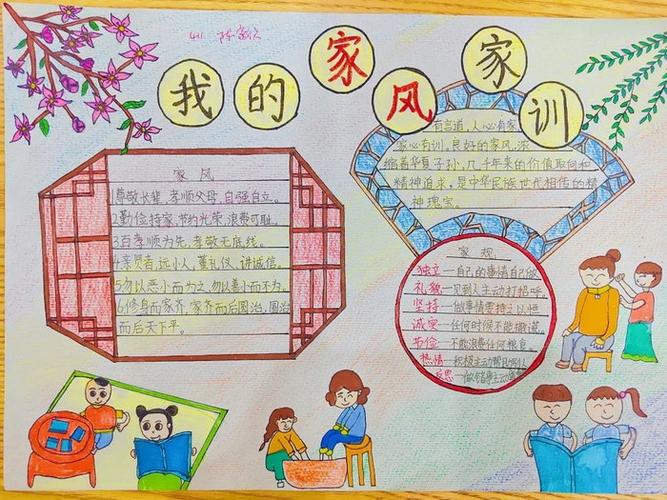 411
我的家风家训
家风
1尊敬长辈,孝顺父母,自强自立。
2勤俭持家,节约光荣,浪费可耻。
3百孝顺为先,孝敬无底线。
4亲贤者,远小人,重礼仪,讲诚信。
5勿以恶小而为之,勿以善小而不为。
6.修身而家齐,家齐而后国治,国治
而后天下平。
有言道,人必有家,
家必有训,良好的家风,浓
缩着华夏子孙,几千年来的价值取向和
精神追求,是中华民族世代相传的精
神瑰宝。
家规
独立—自己的事情自己做
礼貌—见到人主动打招呼。
坚持—做事情要持之以恒
诚实—任何时候不能撒谎。
节俭—不能浪费任何粮食。
热情—积极主动帮助
反思—做错事主动